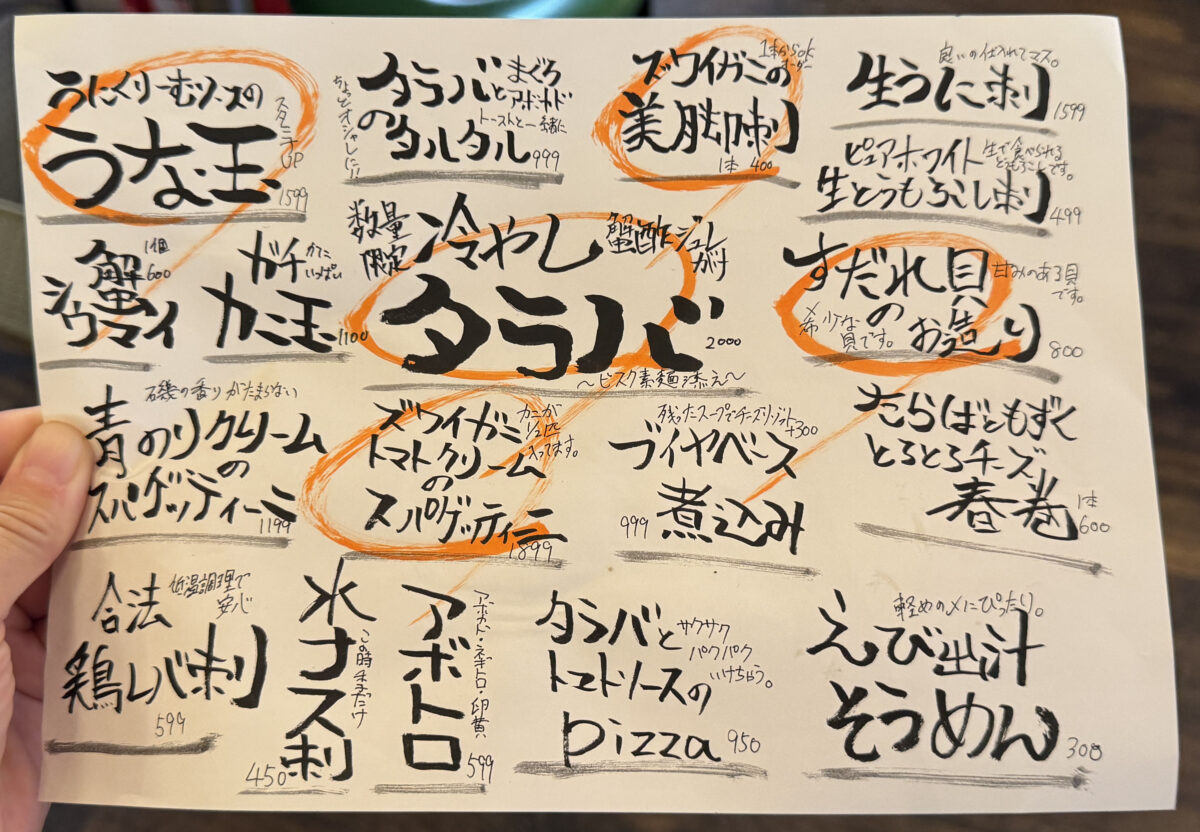 うにくりーむソースの
うな玉
スタミナUP
1599
タラバとまぐろ
アボカド
の
トーストと一緒に
タルタル 999
ちょっとオシャレに!!
ズワイガニの
1本からok
オーダー
美脚刺
1本 400
良いの仕入れてマス。
生うに刺 1599
ピュアホワイト
生で食べられる
とうもろこしです。
生とうもろこし刺 499
蟹
1個
600
シウマイ
ガチ
かに
いっぱい
カニ玉 1100
数量
限定
冷やし
蟹酢ジュレ
がけ
タラバ 2000
〜ビスク素麺添え〜
すだれ貝
の
お造り
甘みのある貝
です。
希少な
貝です。
800
磯の香りがたまらない
青のりクリーム
の
スパゲッティーニ
1199
ズワイガニ
トマトクリーム
の
スパゲッティーニ
カニが
入ってます。
1899
残ったスープでチーズリゾット
+300
ブイヤベース
999 煮込み
たらばともずく
とろとろチーズ
春巻
1本
600
合法
低温調理で
安心
鶏レバ刺
599
水ナス刺
この時季だけ
450
アボトロ
アボカド・ネギトロ・卵黄
599
タラバと
トマトソースの
pizza 950
サクサク
パクパク
いけちゃう。
軽めの〆にぴったり。
えび出汁
そうめん 300